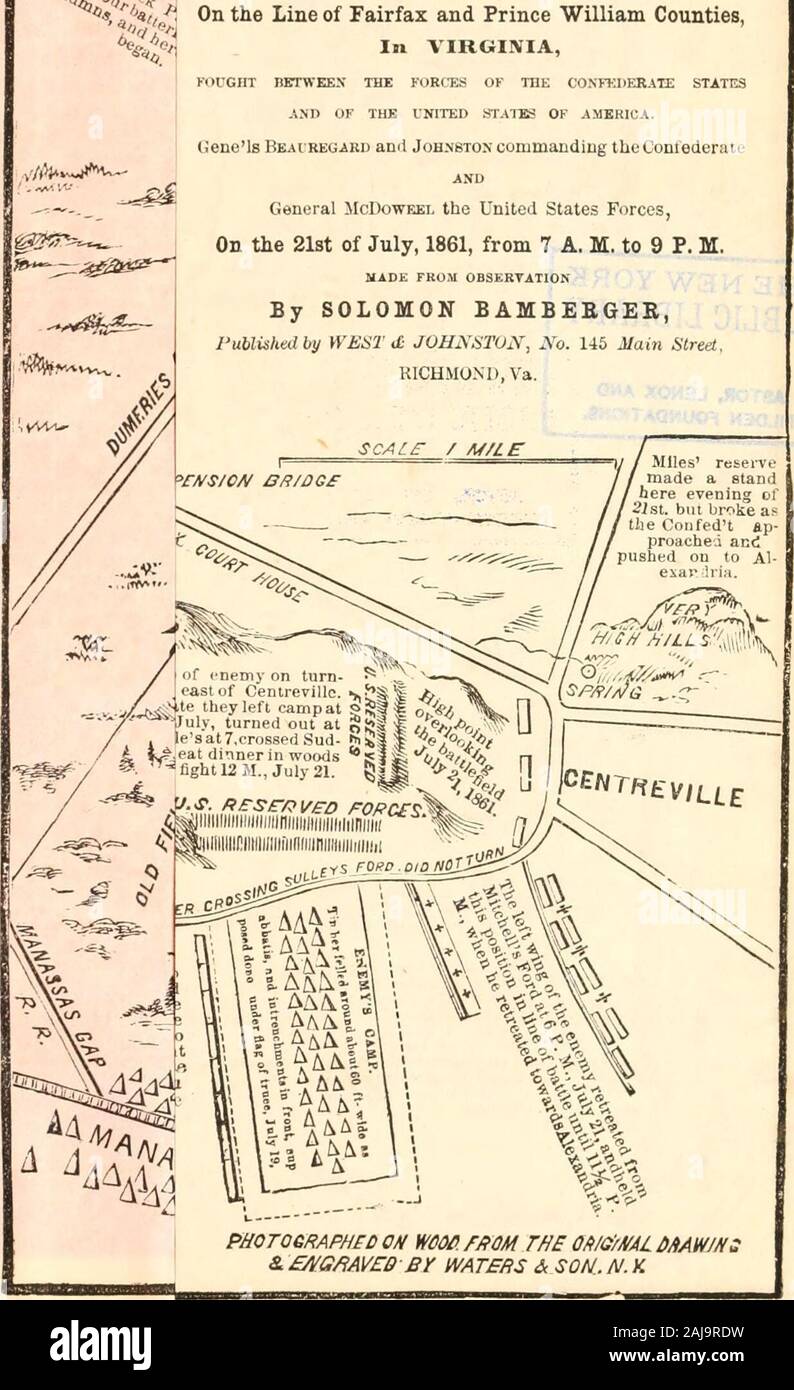 umns, and her
began.
On the Line of Fairfax and Prince William Counties,
In VIRGINIA,
FOUGHT BETWEEN THE FORCES OF THE CONFEDERATE STATES
AND OF THE UNITED STATES OF AMERICA.
Gene'ls BEAUREGARD and JOHNSTON commanding the Confederate
AND
General McDOWEEL the United States Forces,
On the 21st of July, 1861, from 7 A. M. to 9 P. M.
MADE FROM OBSERVATION
By SOLOMON BAMBERGER,
Published by WEST & JOHNSTON, No. 145 Main Street,
RICHMOND, Va.
HE NEW YORK
BLIC LIBRA
ASTOR, LENOX AND
TILDEN FOUNDATIONS.
SCALE 1 MILE
PENSION BRIDGE
K COURT HOUSE
DUMFRIES
Miles' reserve
made a stand
here evening of
21st. but broke as
the Confed't ap-
proached and
pushed on to Al-
exandria.
VERY
HIGH HILLS
SPRING
of enemy on turn-
east of Centreville.
te they left camp at
July, turned out at
le's at 7, crossed Sud-
eat dinner in woods
fight 12 M., July 21.
U.S. RESERVED
FORCES
High point
overlooking
the battlefield
July 21, 1861.
U.S. RESERVED FORCES.
CENTREVILLE
OLD FIE
ER CROSSING SULLEYS FORD. DID NOT TURN
MANASSAS GAP
R. R.
MANA
ENEMY'S CAMP.
Timber felled around about 60 ft. wide as
abbatis, and intrenchments in front, sup
posed done under flag of truce, July 19,
The left wing of the enemy retreated from
Mitchell's Ford at 6 P. M., July 21, and held
this position in line of battle until 11½ P.
M., when he retreated towards Alexandria.
PHOTOGRAPHED ON WOOD FROM THE ORIGINAL DRAWING
& ENGRAVED BY WATERS & SON. N.Y.
a
alamy
alamy
Image ID: 2AJ9RDW
www.alamy.com